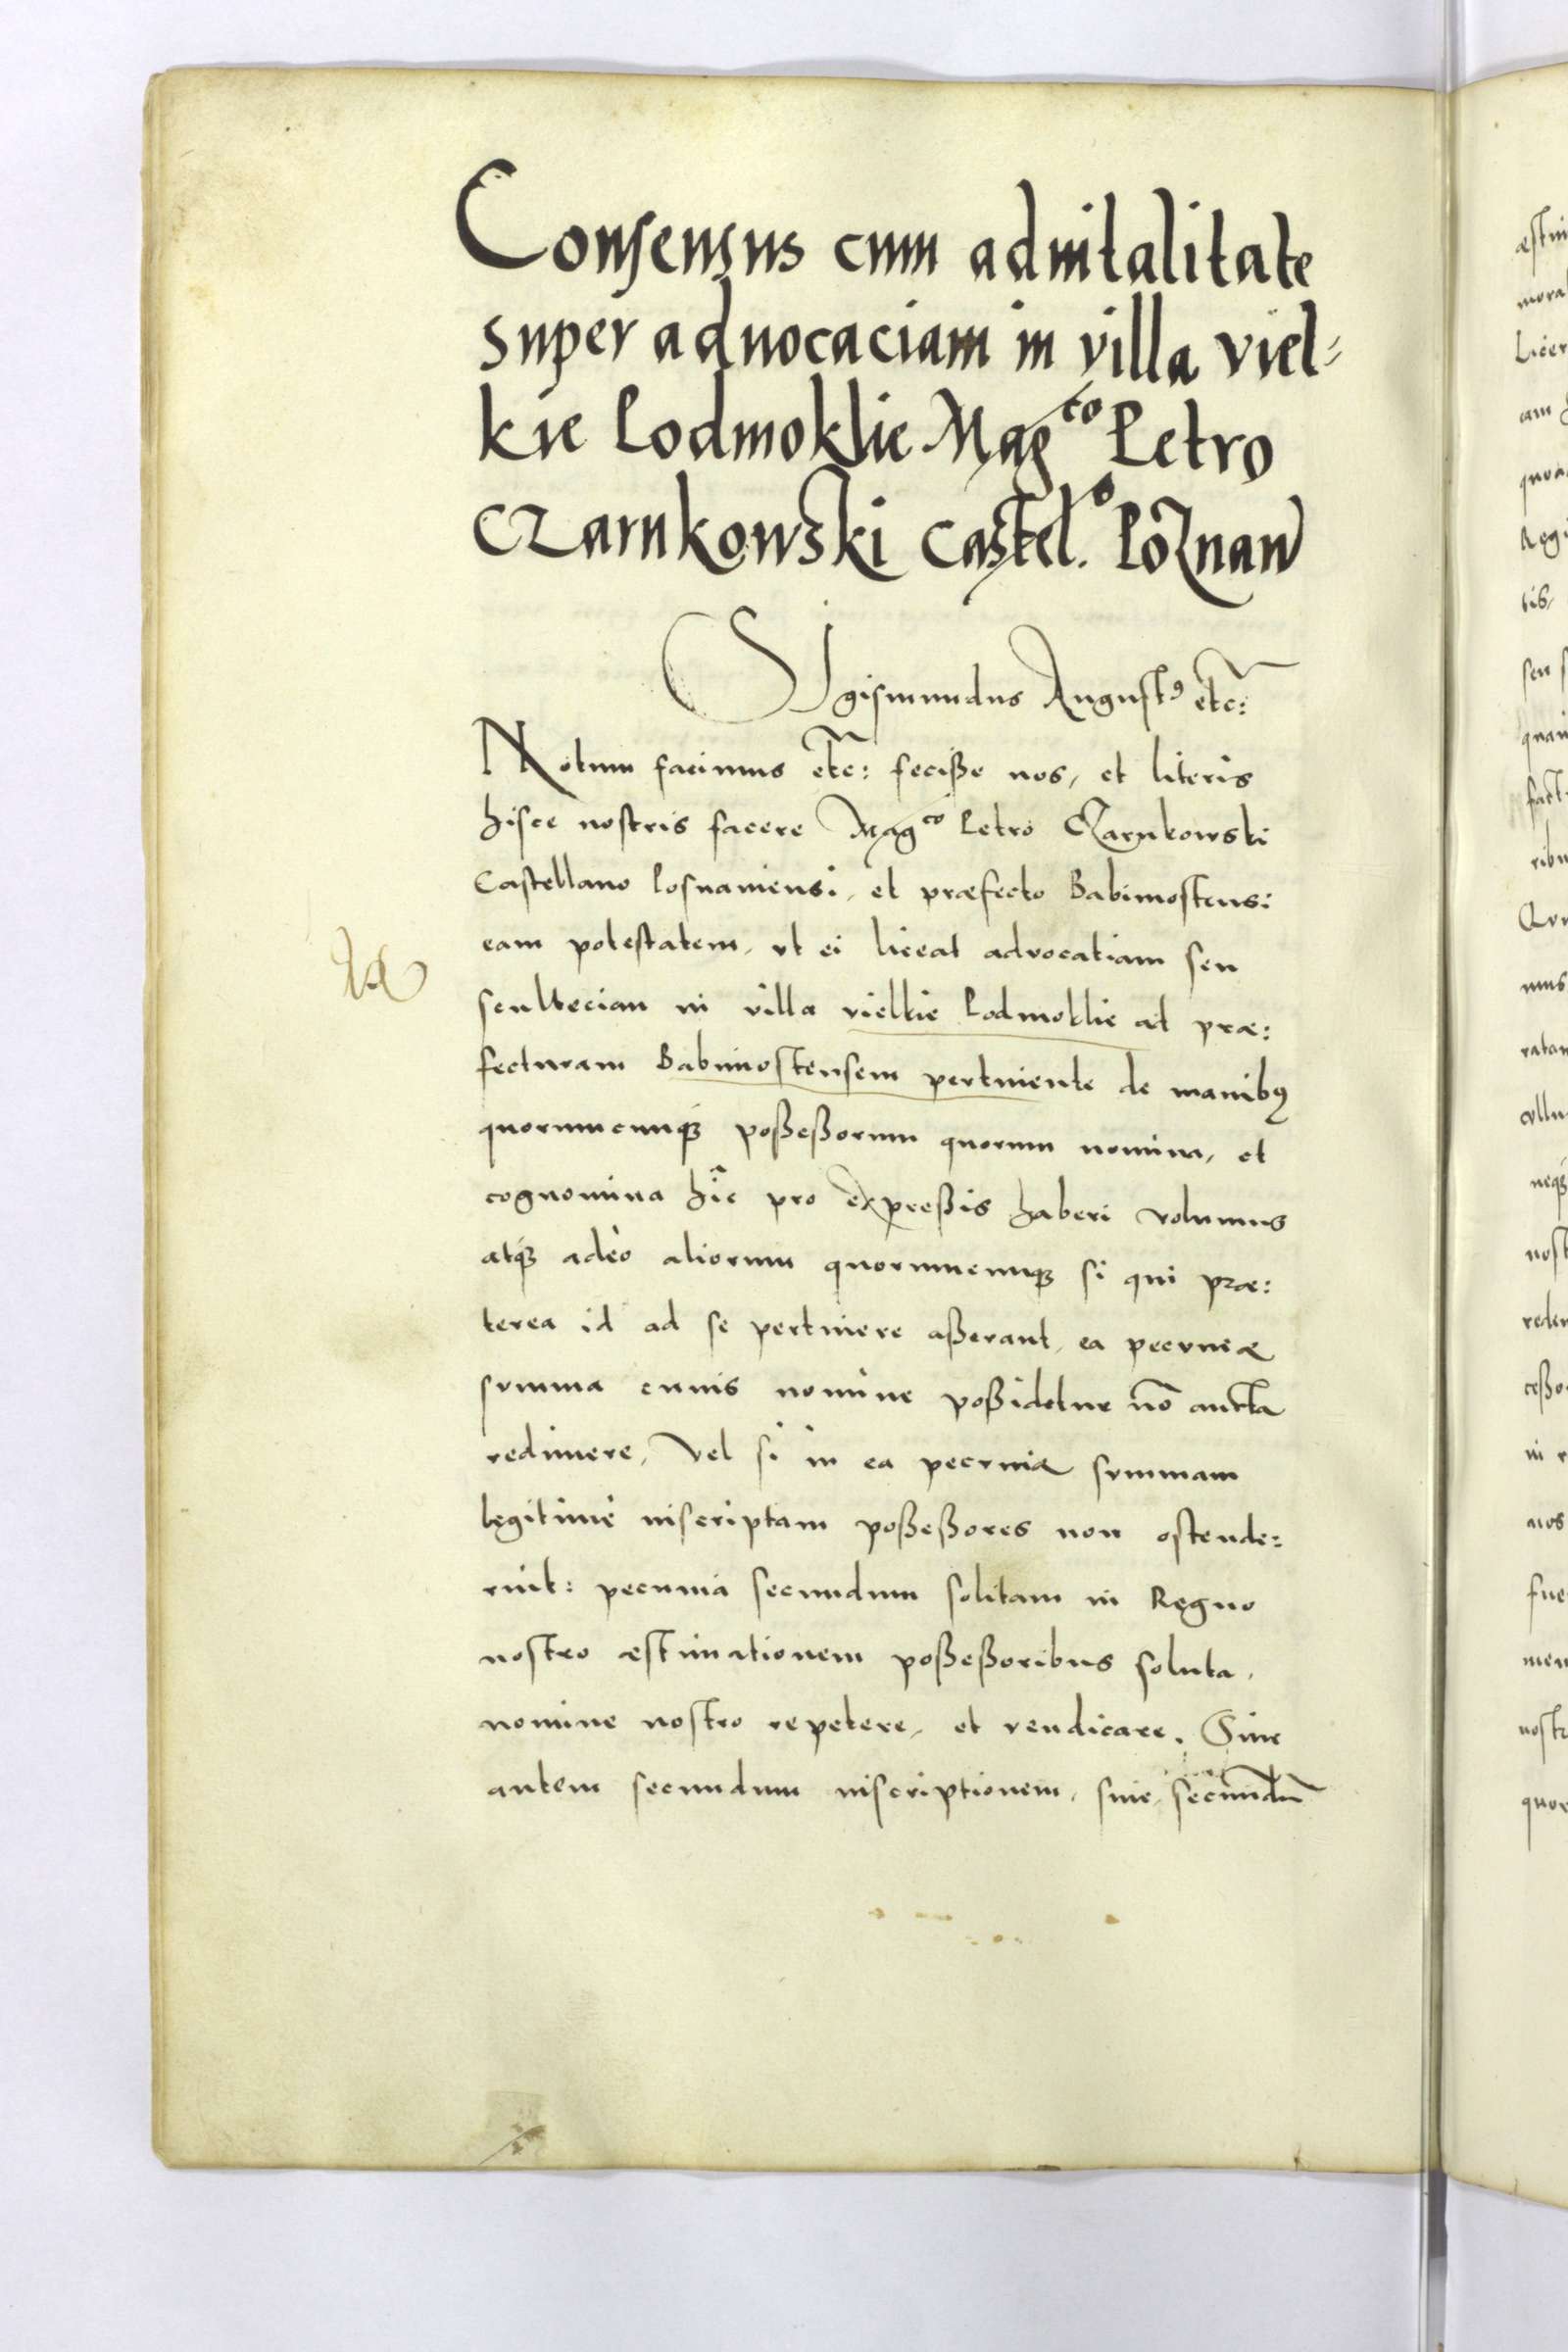 Consensus cum advitalitate
super advocaciam in villa viel-
kie Podmoklie Mag^co Petro
Czarnkowski Castel.^o Poznan
Sigismundus August9 etc:
Notum facimus etc: feciße nos, et literis
hisce nostris facere Mag^co Petro Czarnkowski
Castellano Posnaniensi, et præfecto Babimostensi
eam potestatem, vt ei liceat advocatiam seu
scultecian in villa vielkie Podmoklie ad præ:
fecturam Babimostensem pertinente de manibq
quorumcunq3 poßeßorum quorum nomina, et
cognomina hîc pro expreßis haberi volumus
atq3 adeò aliorum quorumcunq3 si qui præ:
terea id ad se pertinere aßerant, ea pecvniæ
svmma cuius nomine poßidetur nō aucta
redimere, Vel si in ea pecvniæ svmmam
legitimè inscriptam poßeßores non ostende:
rint: pecunia secundum solitam in Regno
nostro æstimationem poßeßoribus soluta,
nomine nostro repetere, et vendicare. Sive
autem secundum inscriptionem, sive secundū
æstim
mora
Licer
am
quoa
Regi
tis,
seu s
quam
fact
ribu
nus
ratam
nost
ceßo
in r
nos
fue
men
nostr
quor